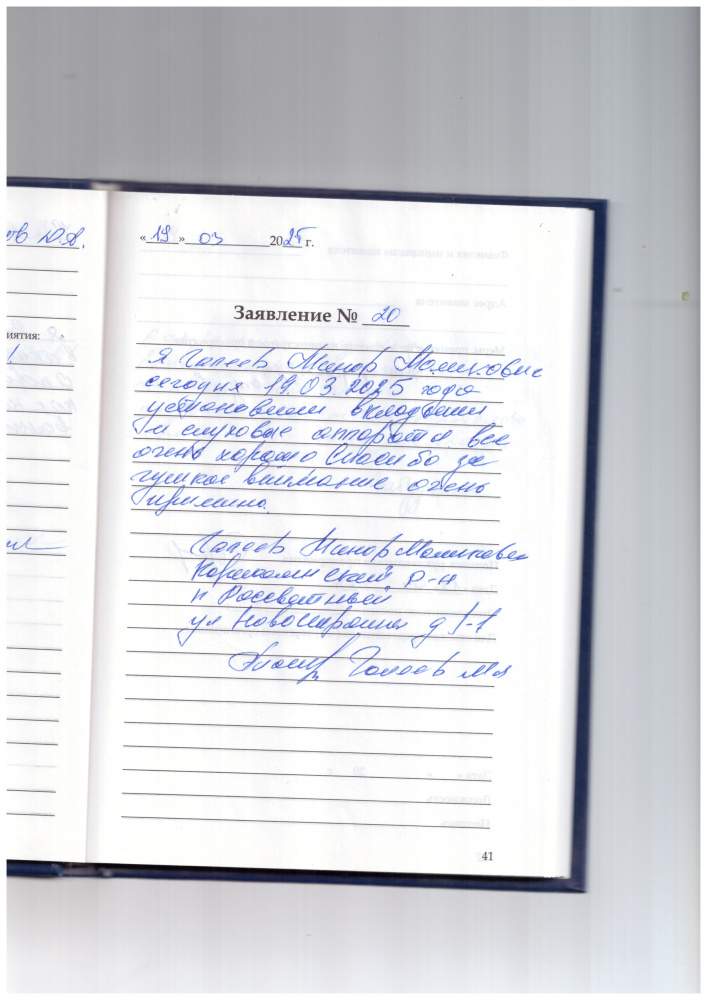 ов Ю.А.
иятия:
« 19 » 03 2025 г.
Заявление № 20
Я Галеев Минор Маликович
сегодня 19.03.2025 года
установили вкладыши
и слуховые аппараты все
очень хорошо Спасибо за
чуткое внимание очень
Галеев Минор Маликович
р-н
п Рассветный
ул Новостроек д 1-1
Галеев МЯ
41